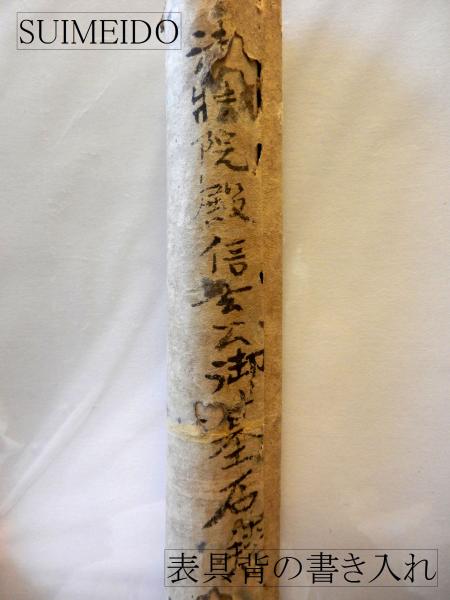 SUIMEIDO
法性院殿信玄公御墓石
表具背の書き入れ